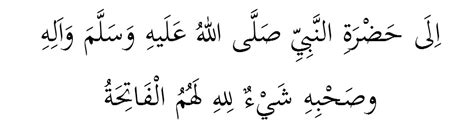 اِلَى حَضْرَةِ النَّبِيِّ صَلَّى اللهُ عَلَيهِ وَسَلَّمَ وَاٰلِهِ
وصَحْبِهِ شَيْءٌ لِلهِ لَهُمُ الْفَاتِحَةُ